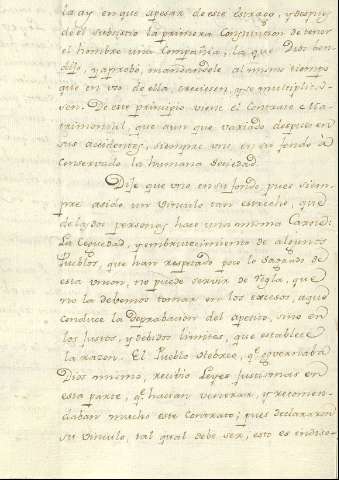 la ay en que apesar de este Estrago, y despues
de el subsistio la primera Constitucion de tener
el hombre una Compañia; la que Dios ben-
dijo, y aprobó, mandandole al mismo tiempo
que en uso de ella, creciesen, y se multiplica-
sen. De este principio viene el Contrato Ma-
trimonial, que aun que variado despues en
sus accidentes, siempre uno en su fondo à
conservado la humana Sociedad.
Dije que uno en su fondo, pues siem-
pre asido un vinculo tan estrecho, que
de las dos personas hace una misma Carne:
La Ceguedad, y embrutecimiento de algunos
Pueblos, que han respetado poco lo Sagrado de
esta union, no puede servir de Regla, que
no la debemos tomar en los excesos, aque
conduce la Depravacion del apetito, sino en
los justos, y debidos limites, que establece
la razon. El Pueblo Hebreo, qe governaba
Dios mismo, recibio Leyes justisimas en
esta parte, qe hacian venerar, y recomen-
daban mucho este Contrato; pues declararon
su vinculo, tal qual debe ser, esto es indiso-